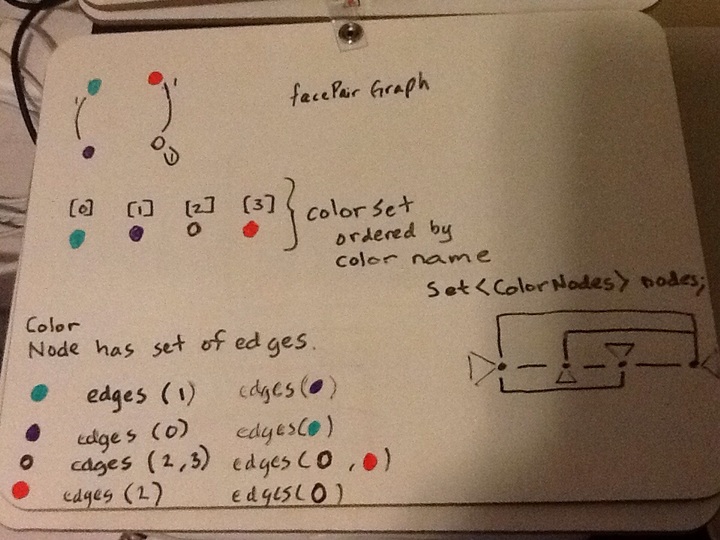 facePair Graph
1
1
1
[0] [1] [2] [3]
color set
ordered by
color name
Set<ColorNodes> nodes;
Color
Node has set of edges.
edges (1) edges( )
edges (0) edges( )
edges (2,3) edges( , )
edges (2) edges( )